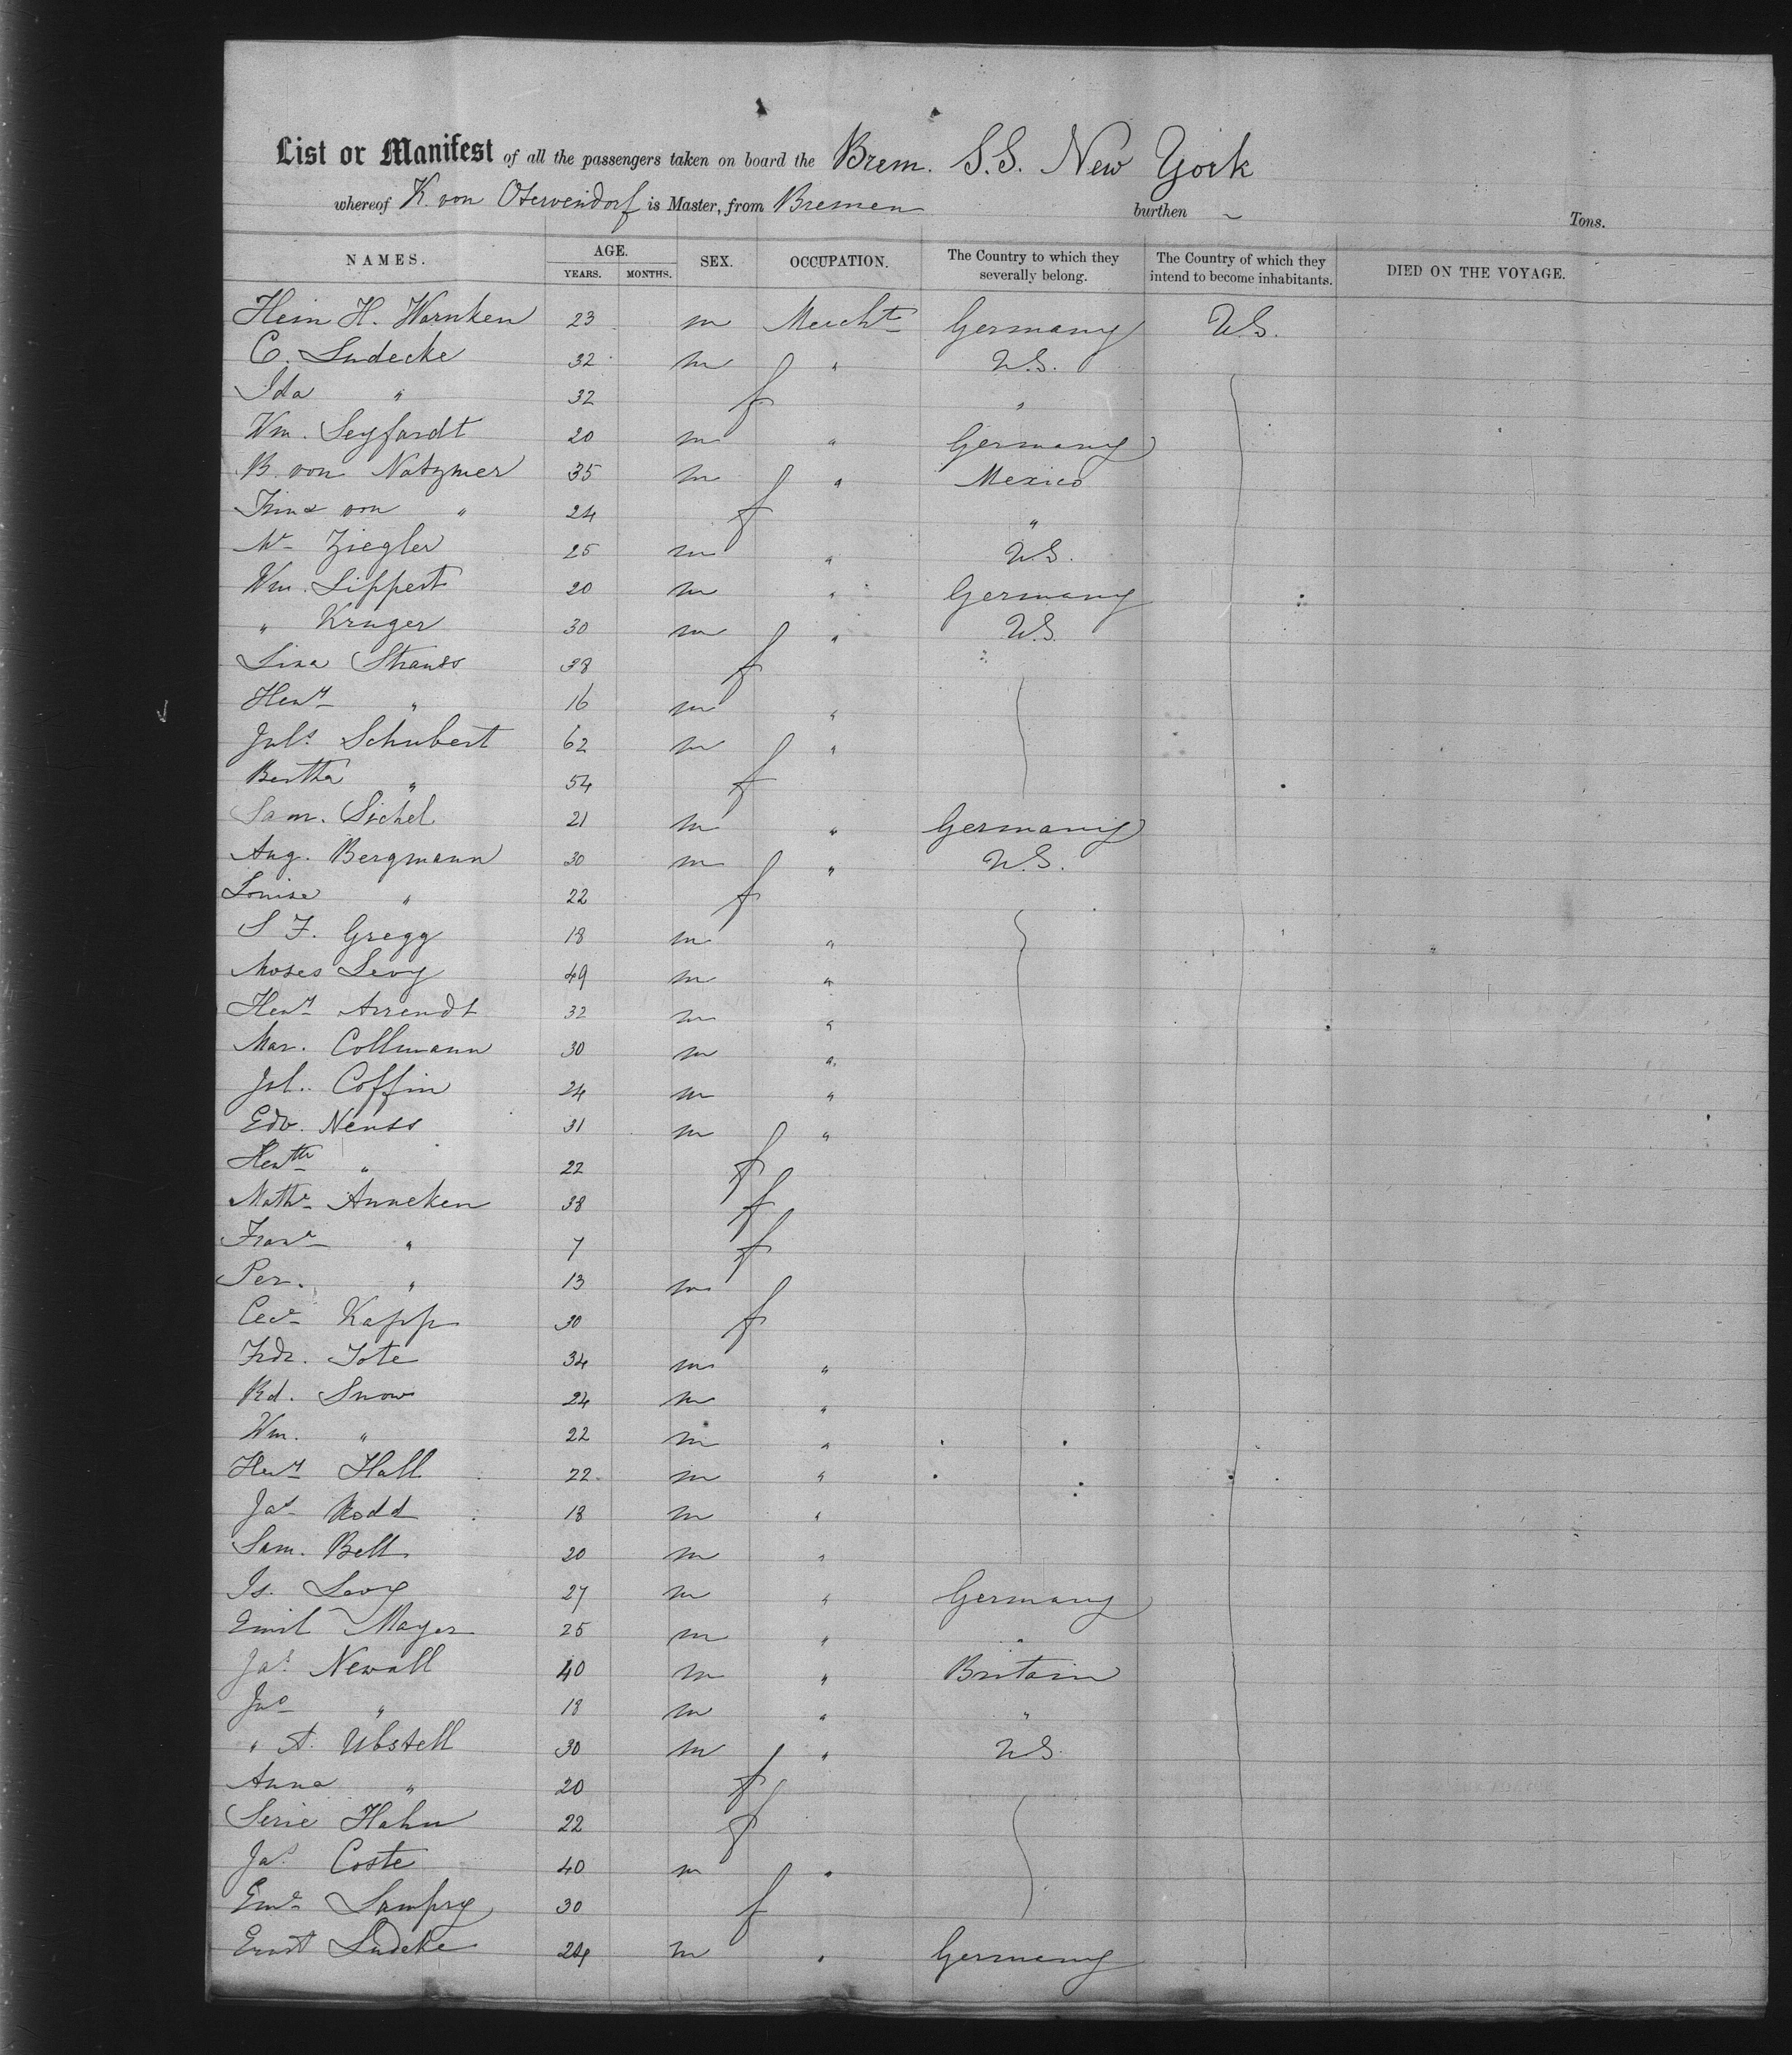 List or Manifest of all the passengers taken on board the Brem. S.S. New York
whereof K. von Oterendorf is Master, from Bremen burthen ~ Tons.
NAMES. AGE. YEARS. MONTHS. SEX. OCCUPATION. The Country to which they severally belong. The Country of which they intend to become inhabitants. DIED ON THE VOYAGE.
Hein H. Warnken 23 m Mercht Germany U.S.
C. Ludecke 32 m " U.S.
Ida " 32 f "
Wm. Seyfardt 20 m " Germany
B. von Natzmer 35 m " Mexico
von " 24 f "
Ziegler 25 m " U.S.
Wm. Lippert 20 m " Germany
" Kruger 30 m " U.S.
Lina Strauss 38 f
Henry " 16 m "
Juls Schubert 62 m "
Bertha " 54 f
Sam. Sichel 21 m " Germany
Aug. Bergmann 30 m " U.S.
Louise " 22 f
S F. Gregg 18 m "
Moses Levy 49 m "
Henry Arrendt 32 m "
Mar. Collmann 30 m "
Jul. Coffin 24 m "
Edv. Neuss 31 m "
" 22 f
Mathe Anneken 38 f
" 7 f
Per. " 13 m
Kapp 30 f
Frdr. Tote 34 m "
Rd. Snow 24 m "
Wm. " 22 m "
Henry Hall 22 m "
Jas Rodd 18 m "
Sam. Bell 20 m "
Is. Levy 27 m " Germany
Emil Mayer 25 m " "
Jas Newall 40 m " Britain
Jno " 18 m " "
" A. Ubstell 30 m " U.S.
Anna " 20 f
Serie Hahn 22 f
Jas Coste 40 m "
30 f
Ernst Ludeke 24 m " Germany